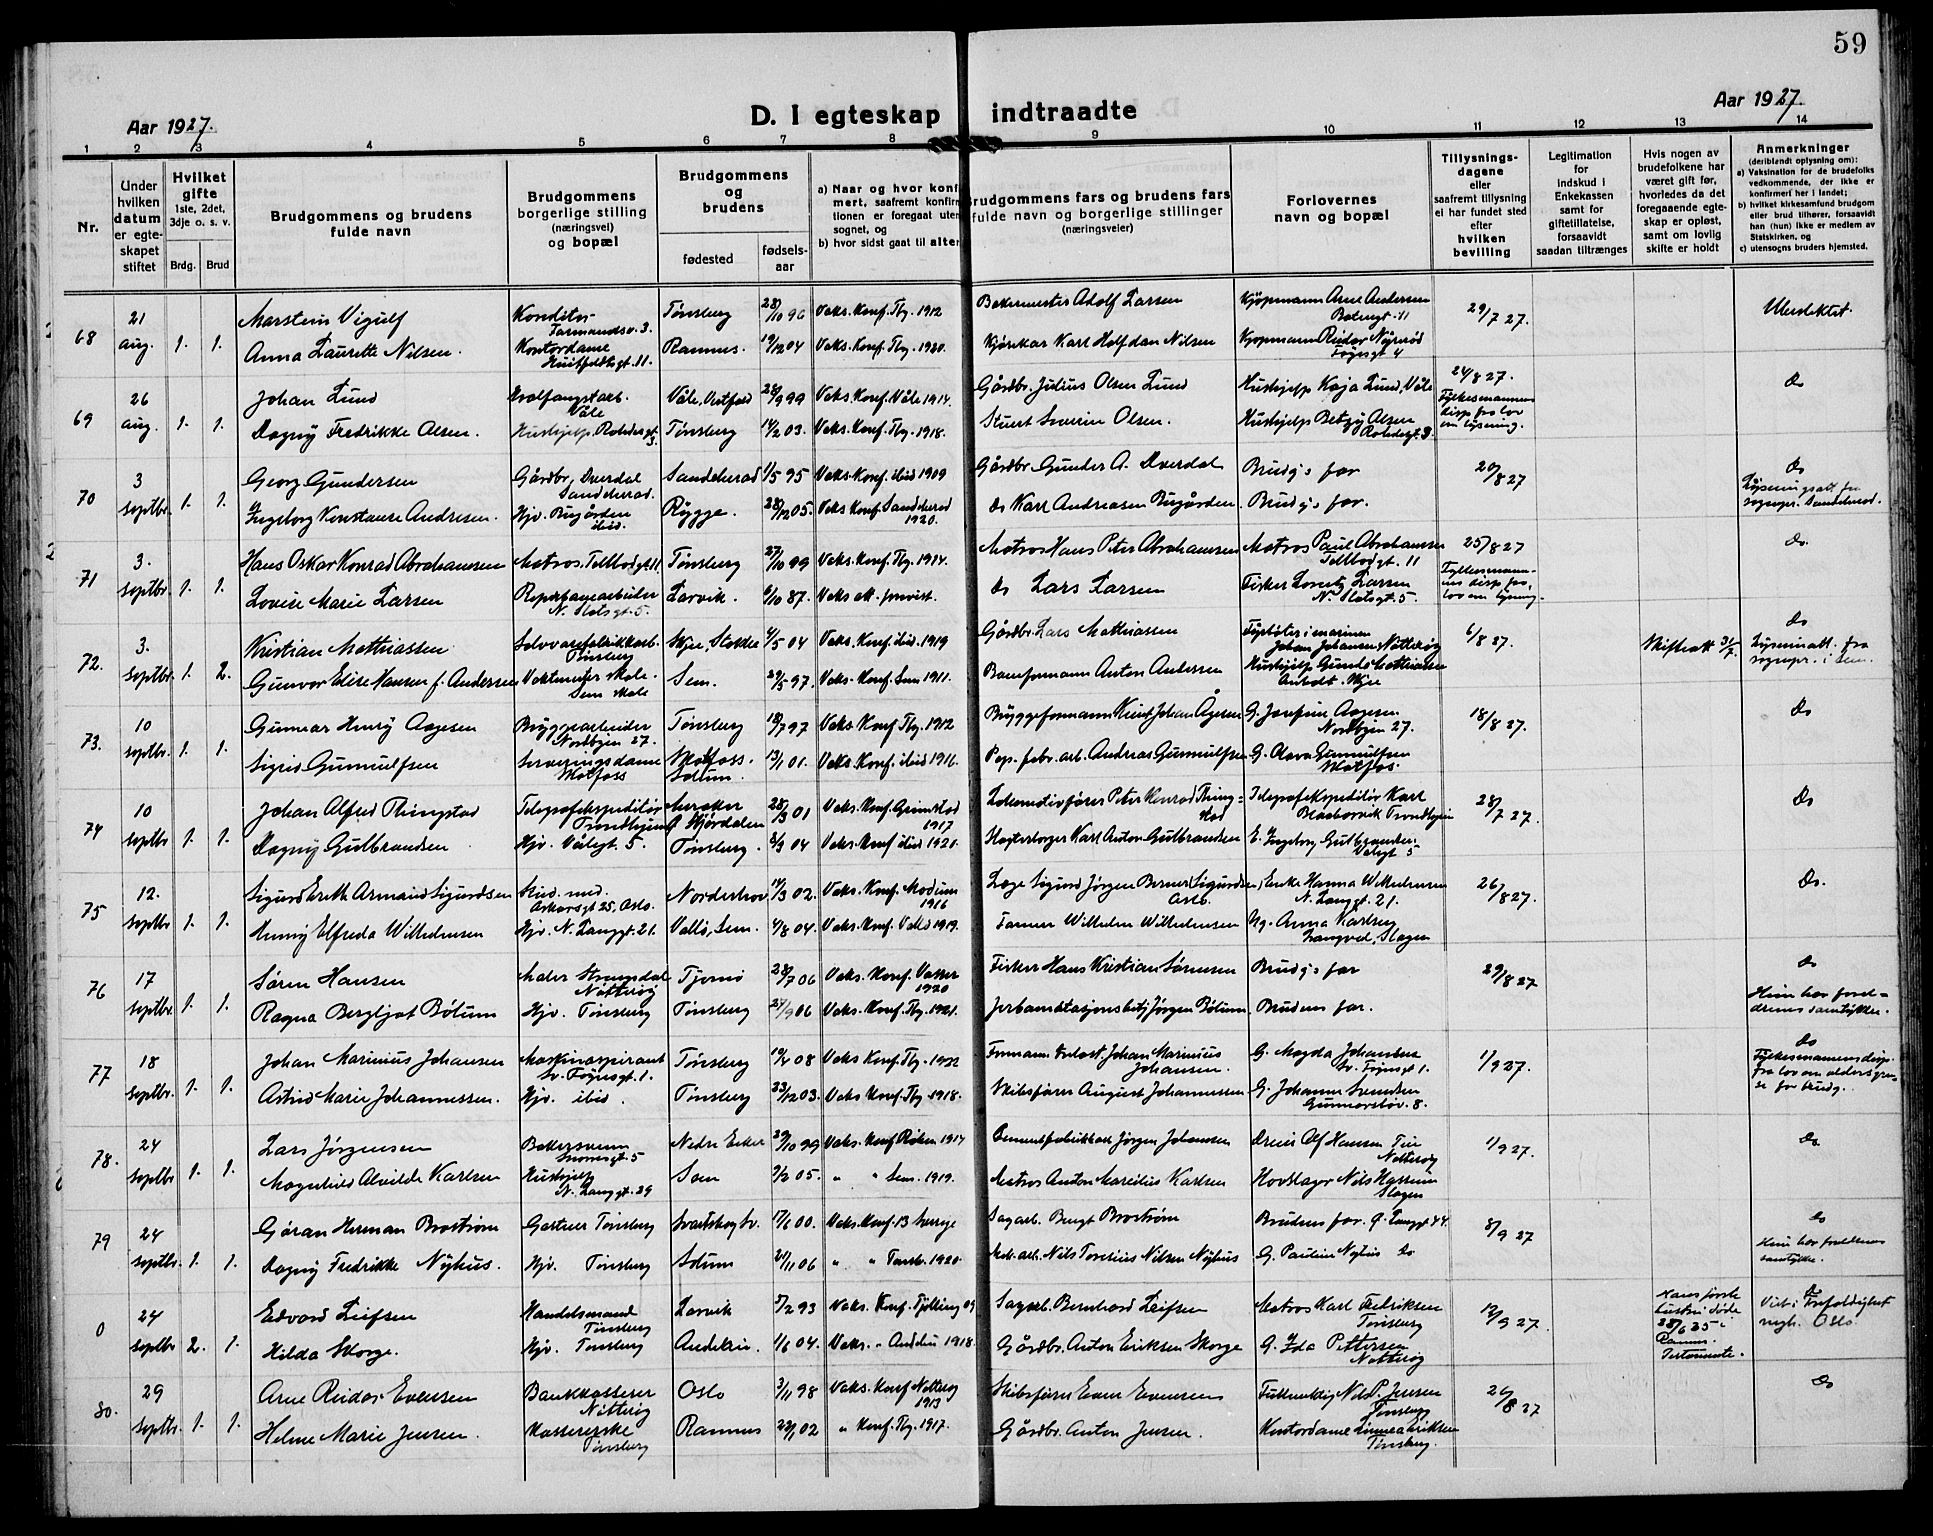 59
Aar 1927.
D. I egteskap indtraadte
Aar 1927.
1 2 3 4 5 6 7 8 9 10 11 12 13 14
Nr.
Under hvilken datum er egteskapet stiftet
Hvilket gifte 1ste, 2det, 3dje o. s. v.
Brdg. Brud
Brudgommens og brudens fulde navn
Brudgommens borgerlige stilling (næringsvei) og bopæl
Brudgommens og brudens
fødested
fødsels-aar
a) Naar og hvor konfirmert, saafremt konfirmationen er foregaat uten sognet, og
b) hvor sidst gaat til alters
Brudgommens fars og brudens fars fulde navn og borgerlige stillinger (næringsveier)
Forlovernes navn og bopæl
Tillysnings-dagene eller saafremt tillysning ei har fundet sted efter hvilken bevilling
Legitimation for indskud i Enkekassen samt for giftetillatelse, forsaavidt saadan tiltrænges
Hvis nogen av brudefolkene har været gift før, hvorledes da det foregaaende egteskap er opløst, samt om lovlig skifte er holdt
Anmerkninger (deriblendt oplysning om):
a) Vaksination for de brudefolks vedkommende, der ikke er konfirmert her i landet;
b) hvilket kirkesamfund brudgom eller brud tilhører, forsaavidt han (hun) ikke er medlem av Statskirken, og
c) utensogns bruders hjemsted.
68 21 aug. 1. 1.
Marstein Vigulf Konditor Farmandsv. 3. Tønsberg 28/10 96 Vaks. Konf. Tbg. 1912 Bakermester Adolf Larsen Kjøpmann Arne Andersen 29/7 27. Utendektet.
Anna Laurette Nilsen. Kontordame Huitfeldtsgt. 11. Ramnes. 19/12 04 Vaks. Konf. Tbg. 1920. Kjørekar Karl Halfdan Nilsen Kjøpmann Reidar
69 26 aug. 1. 1.
Johan Lund Hvalfangstarb. Våle Våle, Vestfold 28/9 99 Vaks. Konf. Våle 1914. Gårdbr. Julius Olsen Lund Hushjelp Kaja Lund, Våle 24/8 27. Fylkesmannens disp. fra lov om lysning. Do
Dagny Fredrikke Olsen. Hushjelp, Tønsberg 14/2 03. Vaks. Konf. Tbg. 1918. Stuert Severin Olsen. Hushjelp Betzy Olsen
70 3 septbr. 1. 1.
Georg Gundersen Gårdbr. Dverdal Sandeherad. Sandeherad 1/5 95 Vaks Konf. ibid 1909 Gårdbr. Gunder A. Dverdal Brudg.s far 20/8 27 Do
Ingeborg Konstanse Andresen. Hjv. Bugården ibid. Rygge. 28/12 05. Vaks Konf. Sandeherad 1920. Do Karl Andreasen Bugården Brudg.s far. Lysningsatt. fra sognepr. Sandeherad.
71 3. septbr. 1. 1.
Hans Oskar Konrad Abrahamsen Matros, Tollbodgt. 11. Tønsberg 27/10 99 Vaks. Konf. Tbg. 1914. Matros Hans Peter Abrahamsen Matros Paul Abrahamsen Tollbodgt. 11 25/8 27 Fylkesmannens disp. fra lov om lysning. Do.
Lovise Marie Larsen Reperbanearbeider N. Slotsgt. 5. Larvik. 6/10 87. Vaks att. forevist. Do Lars Larsen Fisker Lorentz Larsen N. Slotsgt. 5.
72. 3. septbr. 1. 2.
Kristian Mathiassen Tønsberg Skjee, Stokke 4/5 04 Vaks. Konf. ibid 1919 Gårdbr. Lars Mathiassen Fyrbøter i marinen Johan Johansen Nøtterøy 6/8 27. Skifteatt 31/7. Do
Gunvor Elise Hansen f. Andersen Sem Skole Sem. 29/5 97. Vaks. Konf. Sem 1911. Baneformann Anton Andersen Hushjelp Gunda Mathiassen Skjee Lysningsatt. fra sognepr. i Sem.
73. 10 septbr. 1. 1.
Gunnar Henry Aagesen Bryggearbeider Nordbyen 27. Tønsberg 18/7 97 Vaks. Konf. Tbg. 1912 Bryggeformann Knut Johan Ågesen G. Josefine Aagesen Nordbyen 27. 18/8 27. Do
Sigrid Gunnulfsen Serveringsdame Skotfoss Skotfoss. Solum. 13/1 01. Vaks. Konf. ibid 1916. Pap. fabr. arb. Andreas Gunnulfsen G. Olava Gunnulfsen Skotfos.
74 10 septbr 1. 1.
Johan Alfred Thingstad Telegrafekspeditør Trondhjem Meraker Stjørdalen 28/3 01 Vaks. Konf. Grimstad 1917 Lokomotivfører Peter Konrad Thingstad Telegrafekspeditør Karl Trondhjem 28/7 27. Do
Dagny Gulbrandsen Hjv. 5. Tønsberg. 8/9 04 Vaks. Konf. ibid 1920. Karl Anton Gulbrandsen E. Ingeborg Gulbrandsen
75 12. septbr 1. 1.
Sigurd Erith Armand Sigurdsen Stud. med. Oskarsgt 25, Oslo. Norderhov 14/3 02. Vaks. Konf. Modum 1916 Læge Sigurd Jørgen Berner Sigurdsen Oslo. Enke Hanna Wilhelmsen N. Langgt. 21. 26/8 27. Do.
Henny Elfreda Wilhelmsen Hjv. N. Langgt. 21. Vallø, Sem. 4/8 04. Vaks. Konf. Vallø 1919. Tømmer Wilhelm Wilhelmsen Ug. Anna Karlsen Slagen
76 17 septbr. 1. 1.
Søren Hansen Maler Nøtterøy Tjømø 28/7 06 Vaks. Konf. Vasser 1920 Fisker Hans Kristian Sørensen Brudg.s far 29/8 27 Do
Ragna Bergljot Bølum Hjv. Tønsberg Tønsberg 24/9 06 Vaks. Konf. Tbg. 1921. Jernbanestasjonsbetj. Jørgen Bølum Brudens far. Hun har foreldrenes samtykke.
77 18 septbr. 1. 1.
Johan Marinius Johansen Maskinaspirant Sv. Føynsgt. 1. Tønsberg 08 Vaks Konf. Tbg. 1922 Johan Marinius Johansen. G. Magda Johansen Sv. Føynsgt 1. 1/9 27. Do
Astrid Marie Johannessen. Hjv. ibid. Tønsberg 23/12 03. Vaks Konf. Tbg 1918. Skibsfører August Johannessen G. Johanne Svendsen 8. Fylkesmannens disp. fra lov om aldersgrense for brudg.
78. 24 septbr 1. 1.
Lars Jørgensen Bakersvenn Nedre Eiker 29/10 99 Vaks. Konf Røken 1914 Cementfabrikkarb Jørgen Johansen Dreier Olf Hansen Teie Nøtterøy 1/9 27. Do
Magnhild Alvilde Karlsen Hushjelp N. Langgt. 29 Sem 2/2 05. " " Sem. 1919. Matros Anton Marelius Karlsen Hovslager Nils Hansen Slagen
79 24 septbr. 1. 1.
Gøran Herman Brostrøm Gartner Tønsberg Svartskog Sv. 17/6 00. Vaks. Konf. 13 Sverige Sagarb. Bengt Brostrøm Brudens far. Langgt 44. 8/9 27 Do
Dagny Fredrikke Nyhus. Hjv. Tønsberg Solum 21/11 06 " " Tønsb. 1920. Mek. arb. Nils Torelius Nilsen Nyhus G. Pauline Nyhus Do Hun har foreldrenes samtykke.
0 24 septbr 2. 1.
Edvard Leifsen Handelsmand Tønsberg Larvik 5/2 93 Vaks. Konf. Tjølling 09 Sagarb. Bernhard Leifsen Matros Karl Fredriksen Tønsberg 12/9 27. Hans første hustru døde 28/6 25 i Ramnes. Testamente. Viet i Trefoldighet mgh. Oslo.
Hilda Skorge. Hjv. Tønsberg Andebu. 1/6 04. Vaks. " Andebu 1918. Gårdbr. Anton Eriksen Skorge G. Ida Pettersen Nøtterøy
80. 29 septbr. 1. 1.
Arne Reidar Evensen Bankkasserer Nøtterøy Oslo 3/11 98 Vaks. Konf Nøtterøy 1913 Skibsfører Even Evensen Fullmektig Nils P. Jensen Tønsberg 26/8 27 Do
Helene Marie Jensen. Kassererske Tønsberg Ramnes 22/1 02 " Konf. Tbg. 1917. Gårdbr. Anton Jensen. Kontordame Linnea Eriksen Tønsberg.